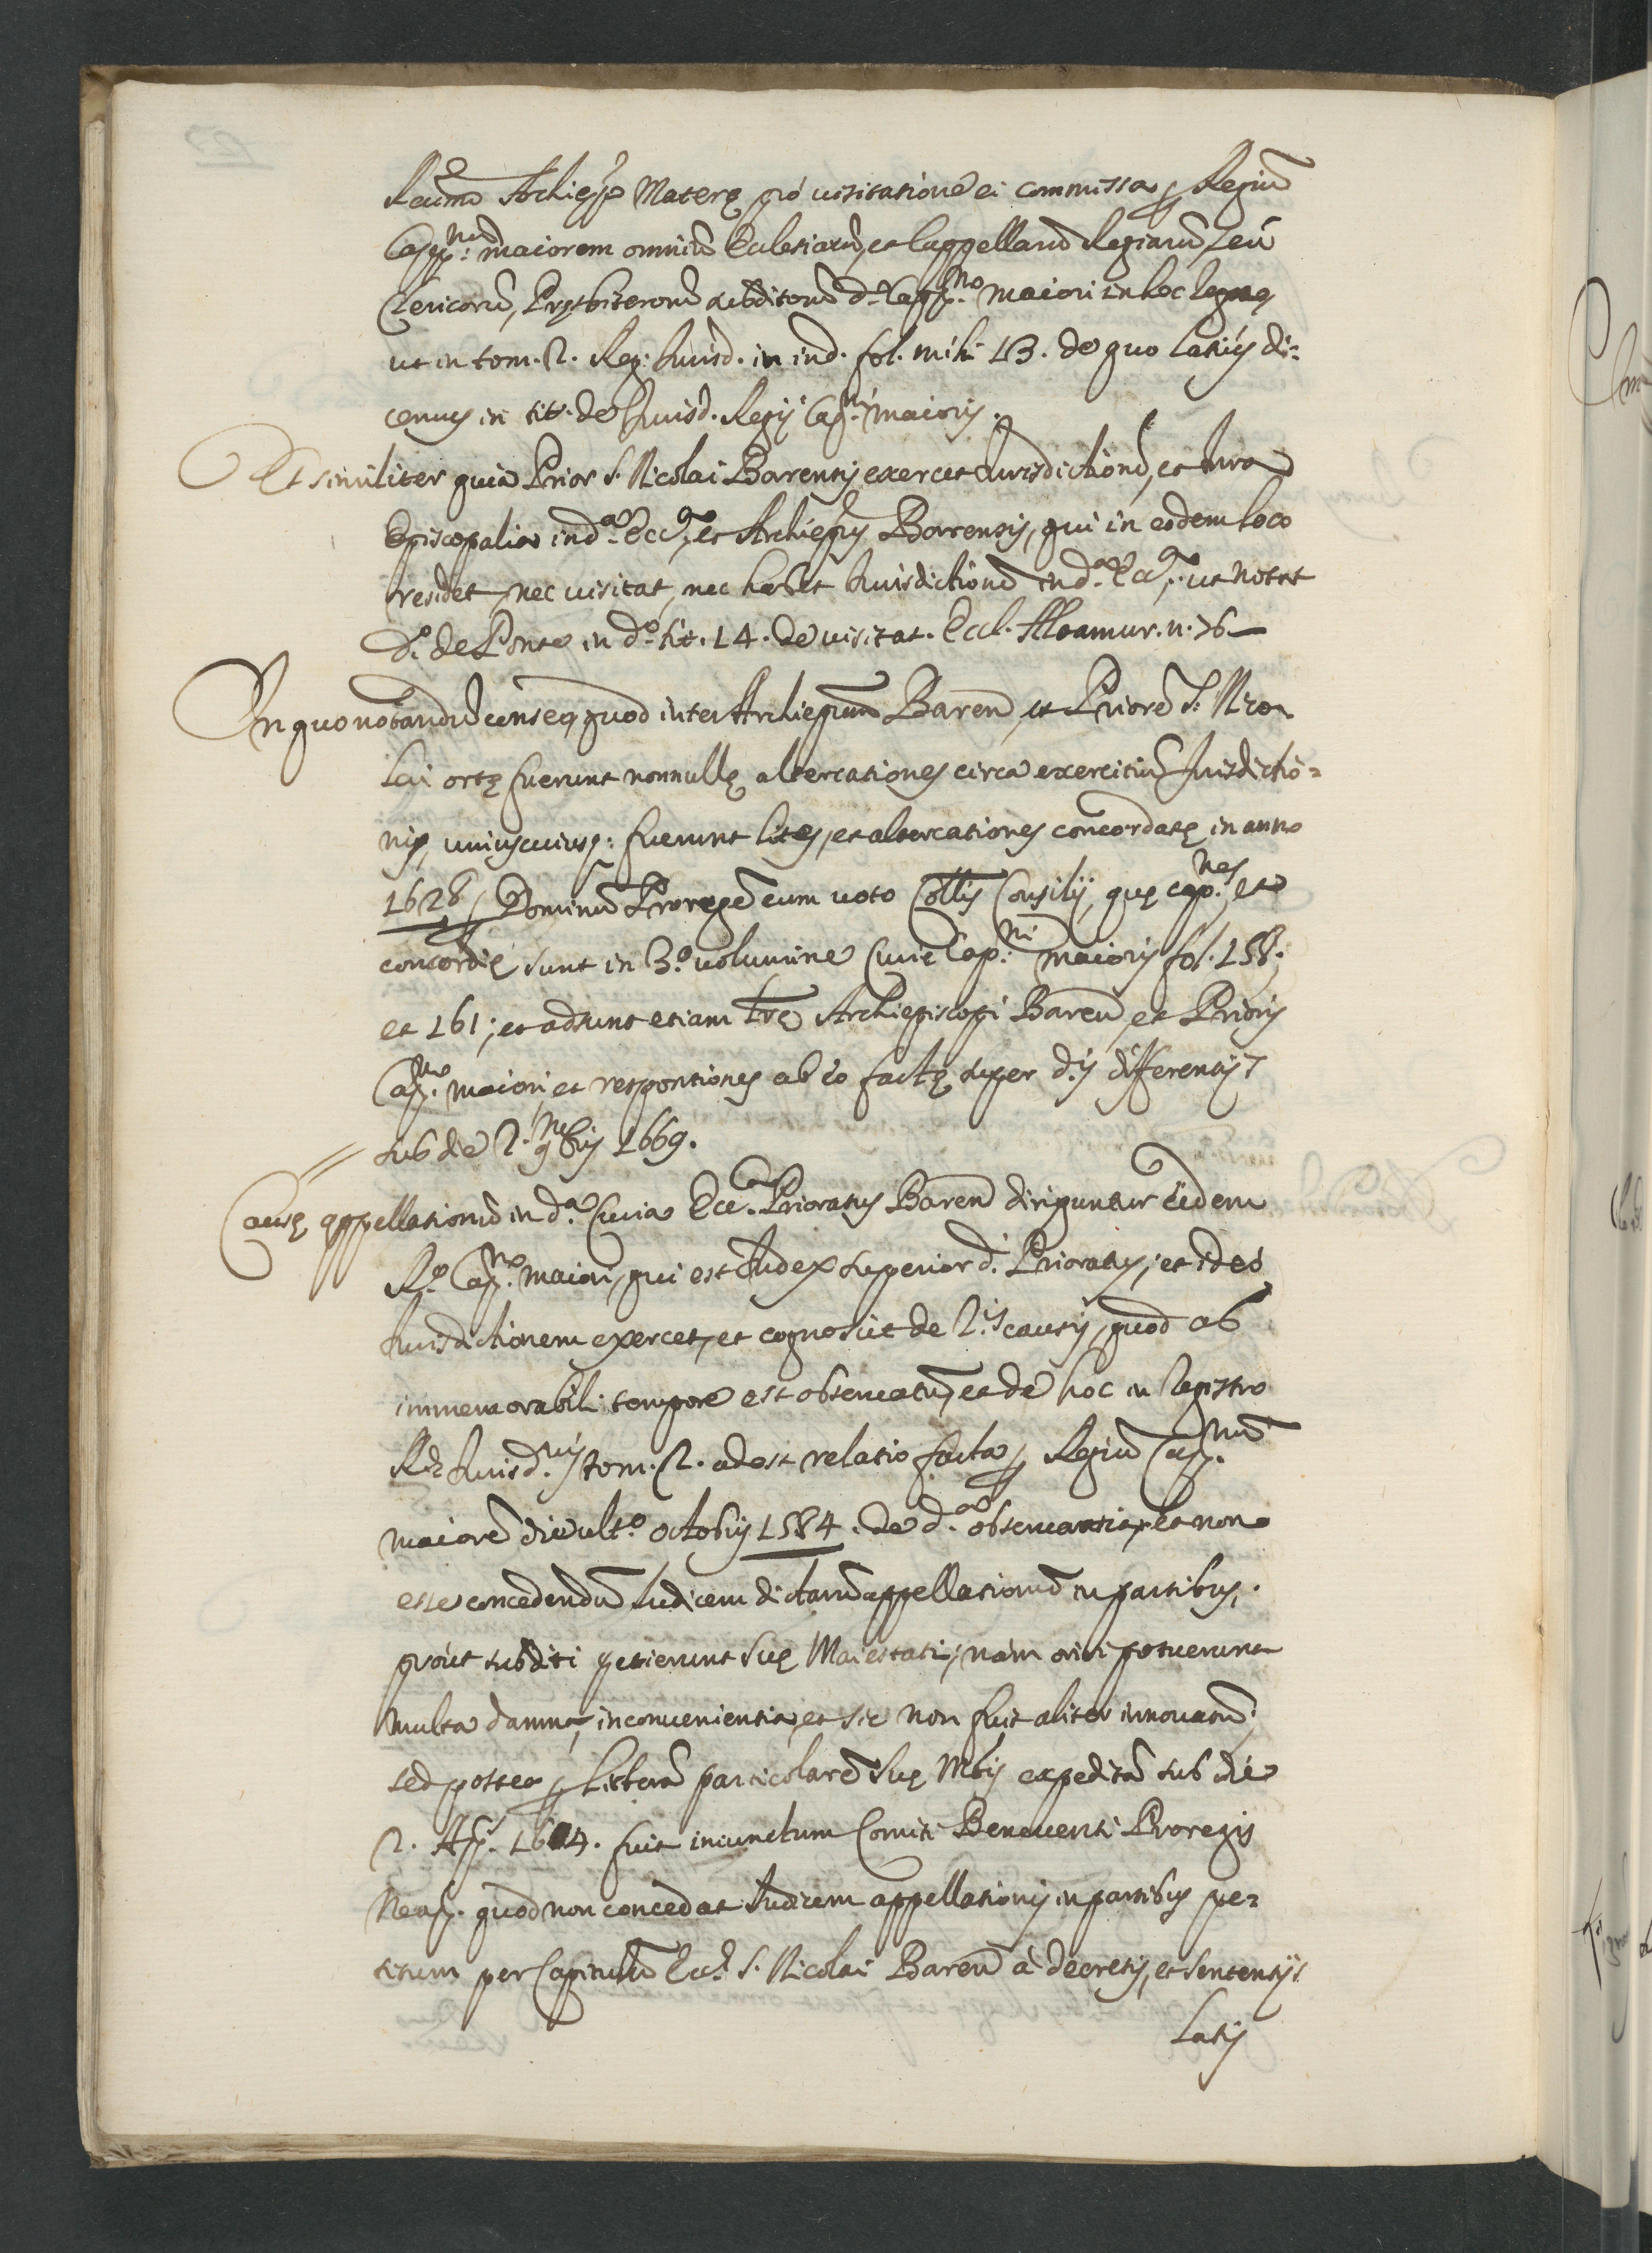 Reumo Archiep̃o Materę pró uisitatione ei commissa ꝑ Regiũ
Capp:num maiorem omniũ Eclesiarũ, et Cappellarũ Regiarũ, seù
Clericorũ, Pręsbiterorũ subditorũ d.o Capp.no maiori in hoc Regno,
ut in tom. 2. Reg. Iurisd. in ind. fol. mihi 13. de quo latiùs di=
cemus in tit. de Iurisd. Regij Cap.ni maioris.
Et similiter quia Prior S. Nicolai Barensis exercet Iurisdictionẽ, et Iura
Episcopalia in d.a Ecc.a, et Archiepũs Barensis, qui in eodem loco
residet, nec uisitat, nec habet Iurisdictionẽ in d.a Ecc.a, ut notat
D. de Ponte in d.o tit. 14. de uisitat. Eccl. Altamur. n. 76
In quo notandũ censeo, quod inter Archiepũm Barenũ, et Priorẽ S. Nico
lai ortę fuerunt nonnullę altercationes circa exercitiũ Iurisdictio=
nis, uniuscuiusq: fuerunt lites, et altercationes concordatę in anno
1628 ꝑ Dominũ Proregẽ cum uoto Coll̃is Consilij, quę cap:nes, et
concordię sunt in 3.o uolumine Curię Cap:ni maioris fol. 158.
et 161; et adsunt etiam lr̃ę Archiepiscopi Barenũ, et Prioris
Cap.no maiori, et responsiones ab eo factę super d.is differentijs
sub die 2. 9bris 1669.
Causę appellationũ in d.a Curia Ecc.a Prioratus Barenũ diriguntur eidem
R.o Cap.no maiori, qui est Iudex superior d.i Prioratus; et ideò
Iurisdictionem exercet, et cognoscit de 2.is causis, quod ab
immemorabili tempore est obseruatũ, et de hoc in Registro
R. Iurisd.nis tom. 2. adest relatio facta ꝑ Regiũ Cap.num
maiorẽ die ult.o octobris 1584. de d.a obseruantia, et non
esse concedendũ Iudicem dictarũ appellationũ in partibus,
prout subditi petierunt Suę Maiestati; nàm oriri potuerunt
multa damna, inconuenientia, et sic non fuit aliter innouatũ;
sed postea ꝑ litterã particolarẽ Suę M.tis expeditã sub die
2. Ap. 1604. fuit iniunctum Comiti Beneuenti Proregis
Neap. quod non concedat Iudicem appellationis in partibus pe=
titum per Capitulũ Eccl. S. Nicolai Barenũ à decretis, et sententijs
Latis